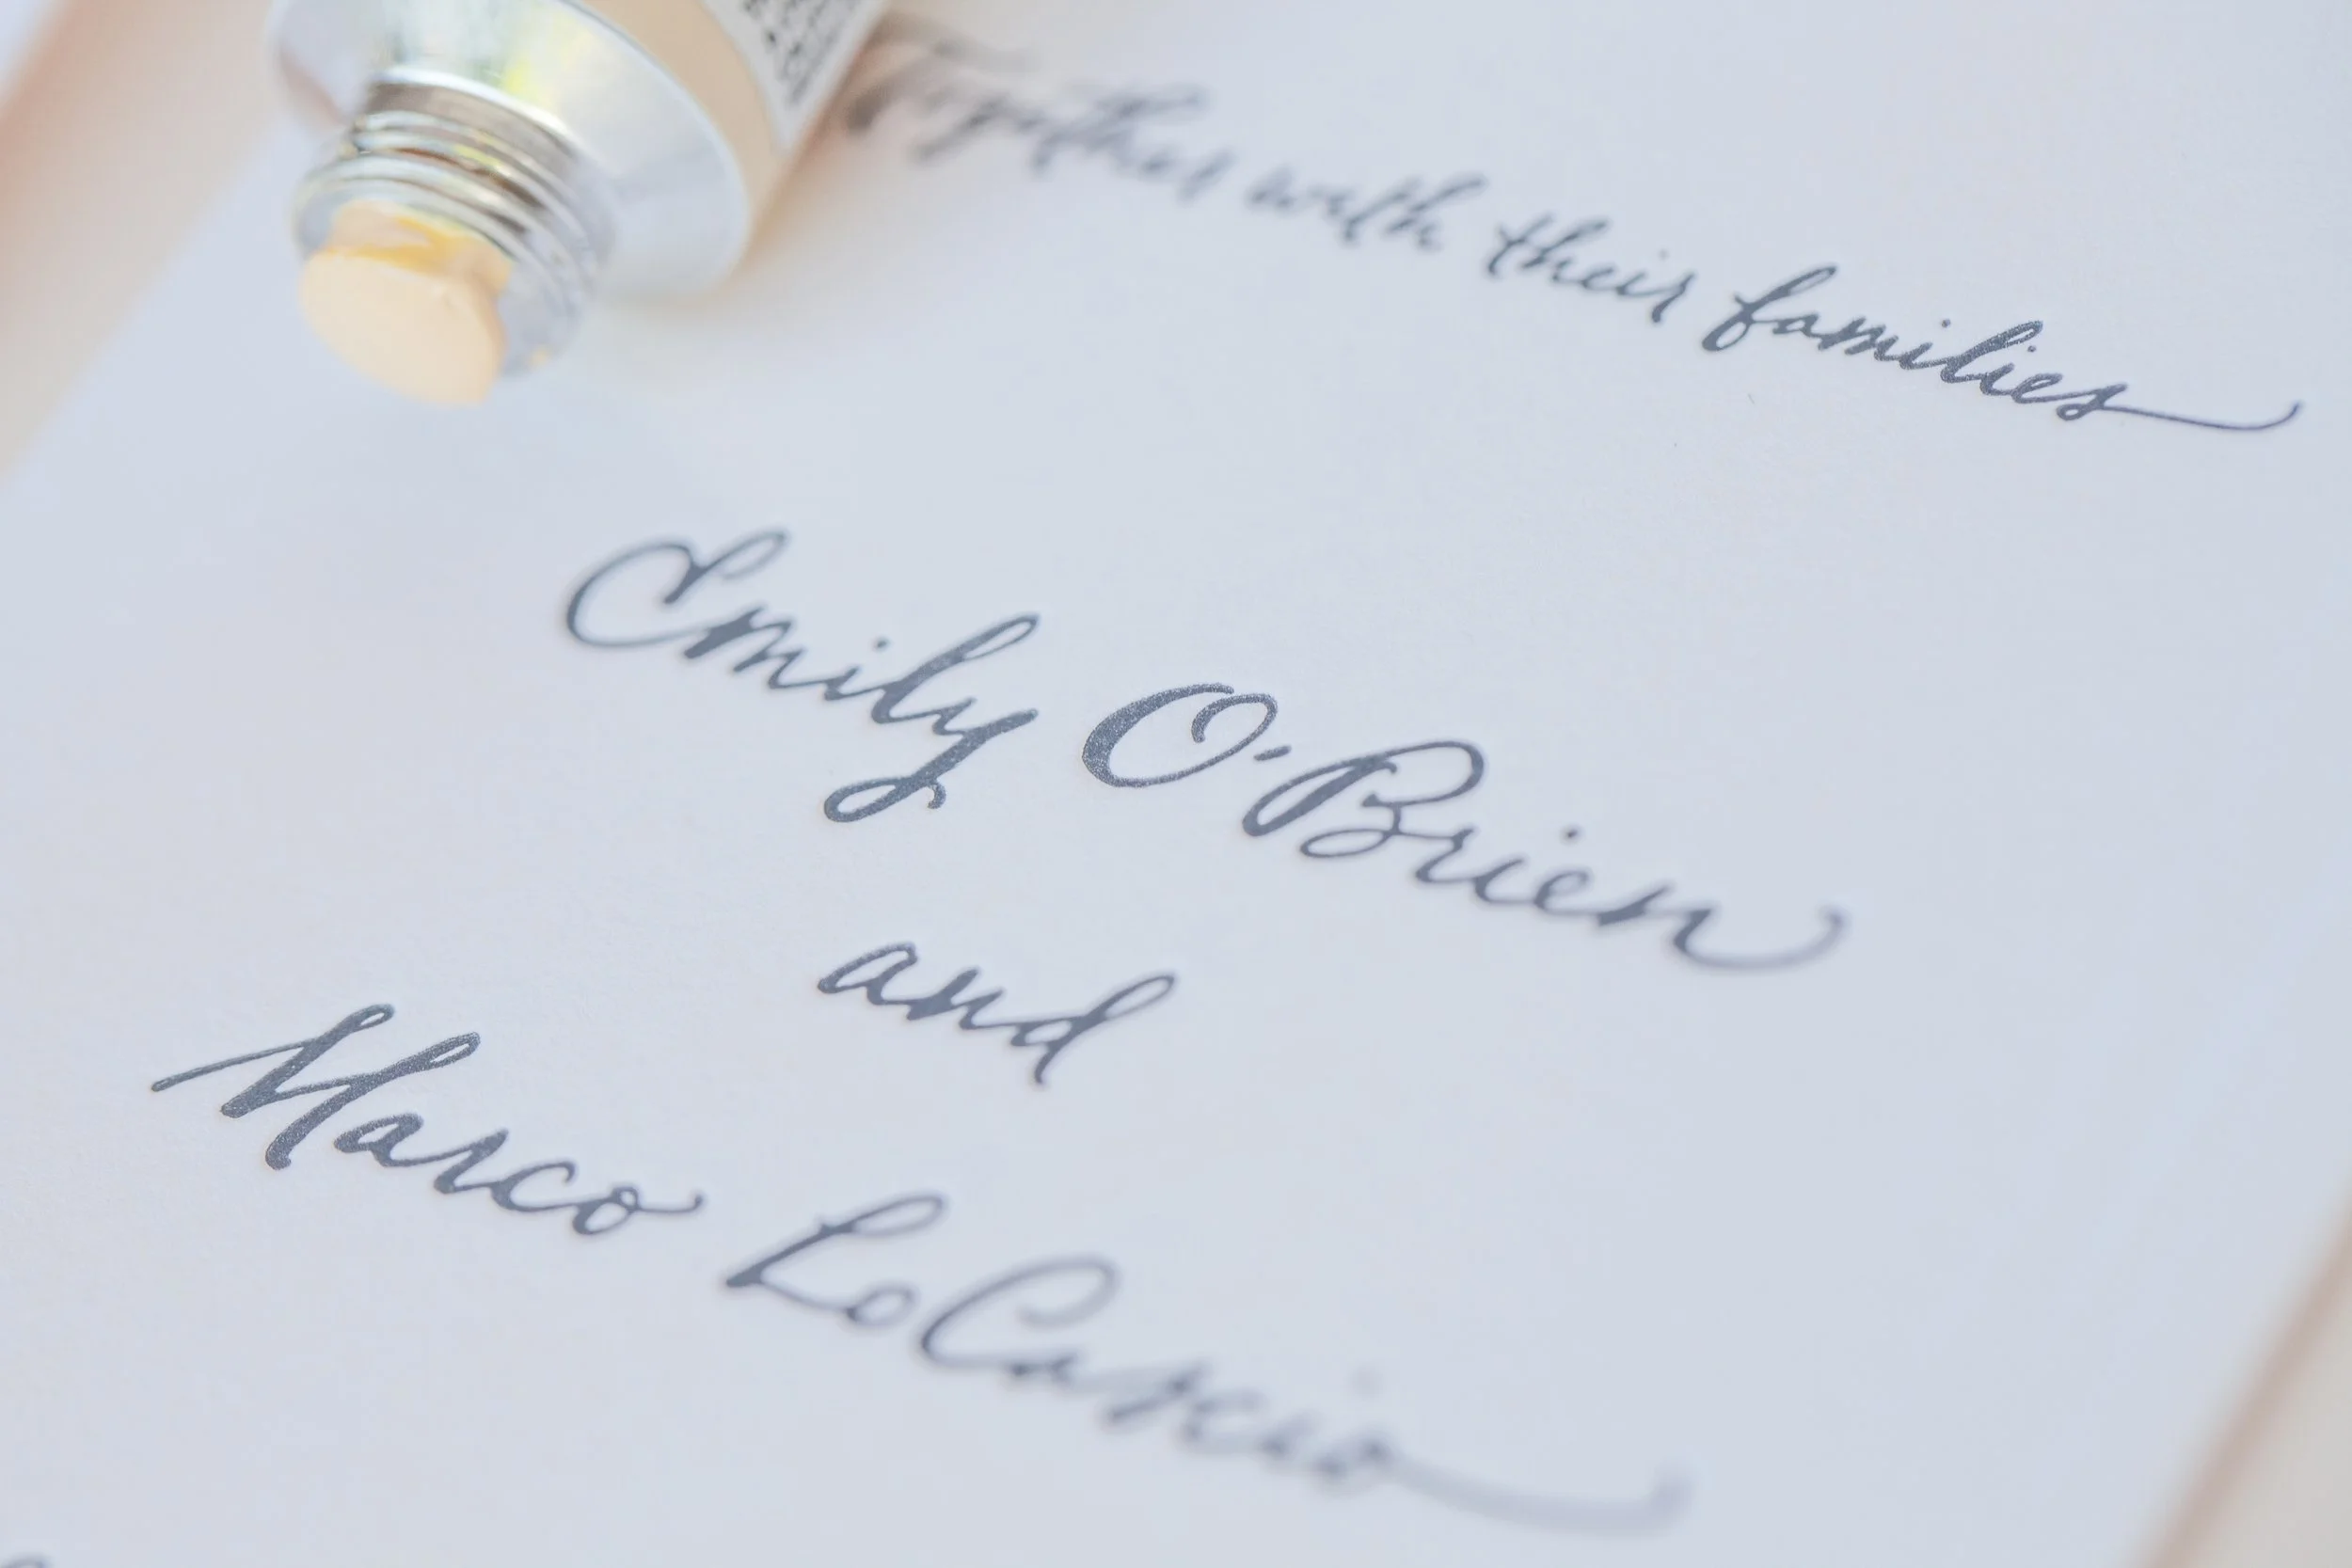 Together with their families
Emily O'Brien
and
Marco LoCascio